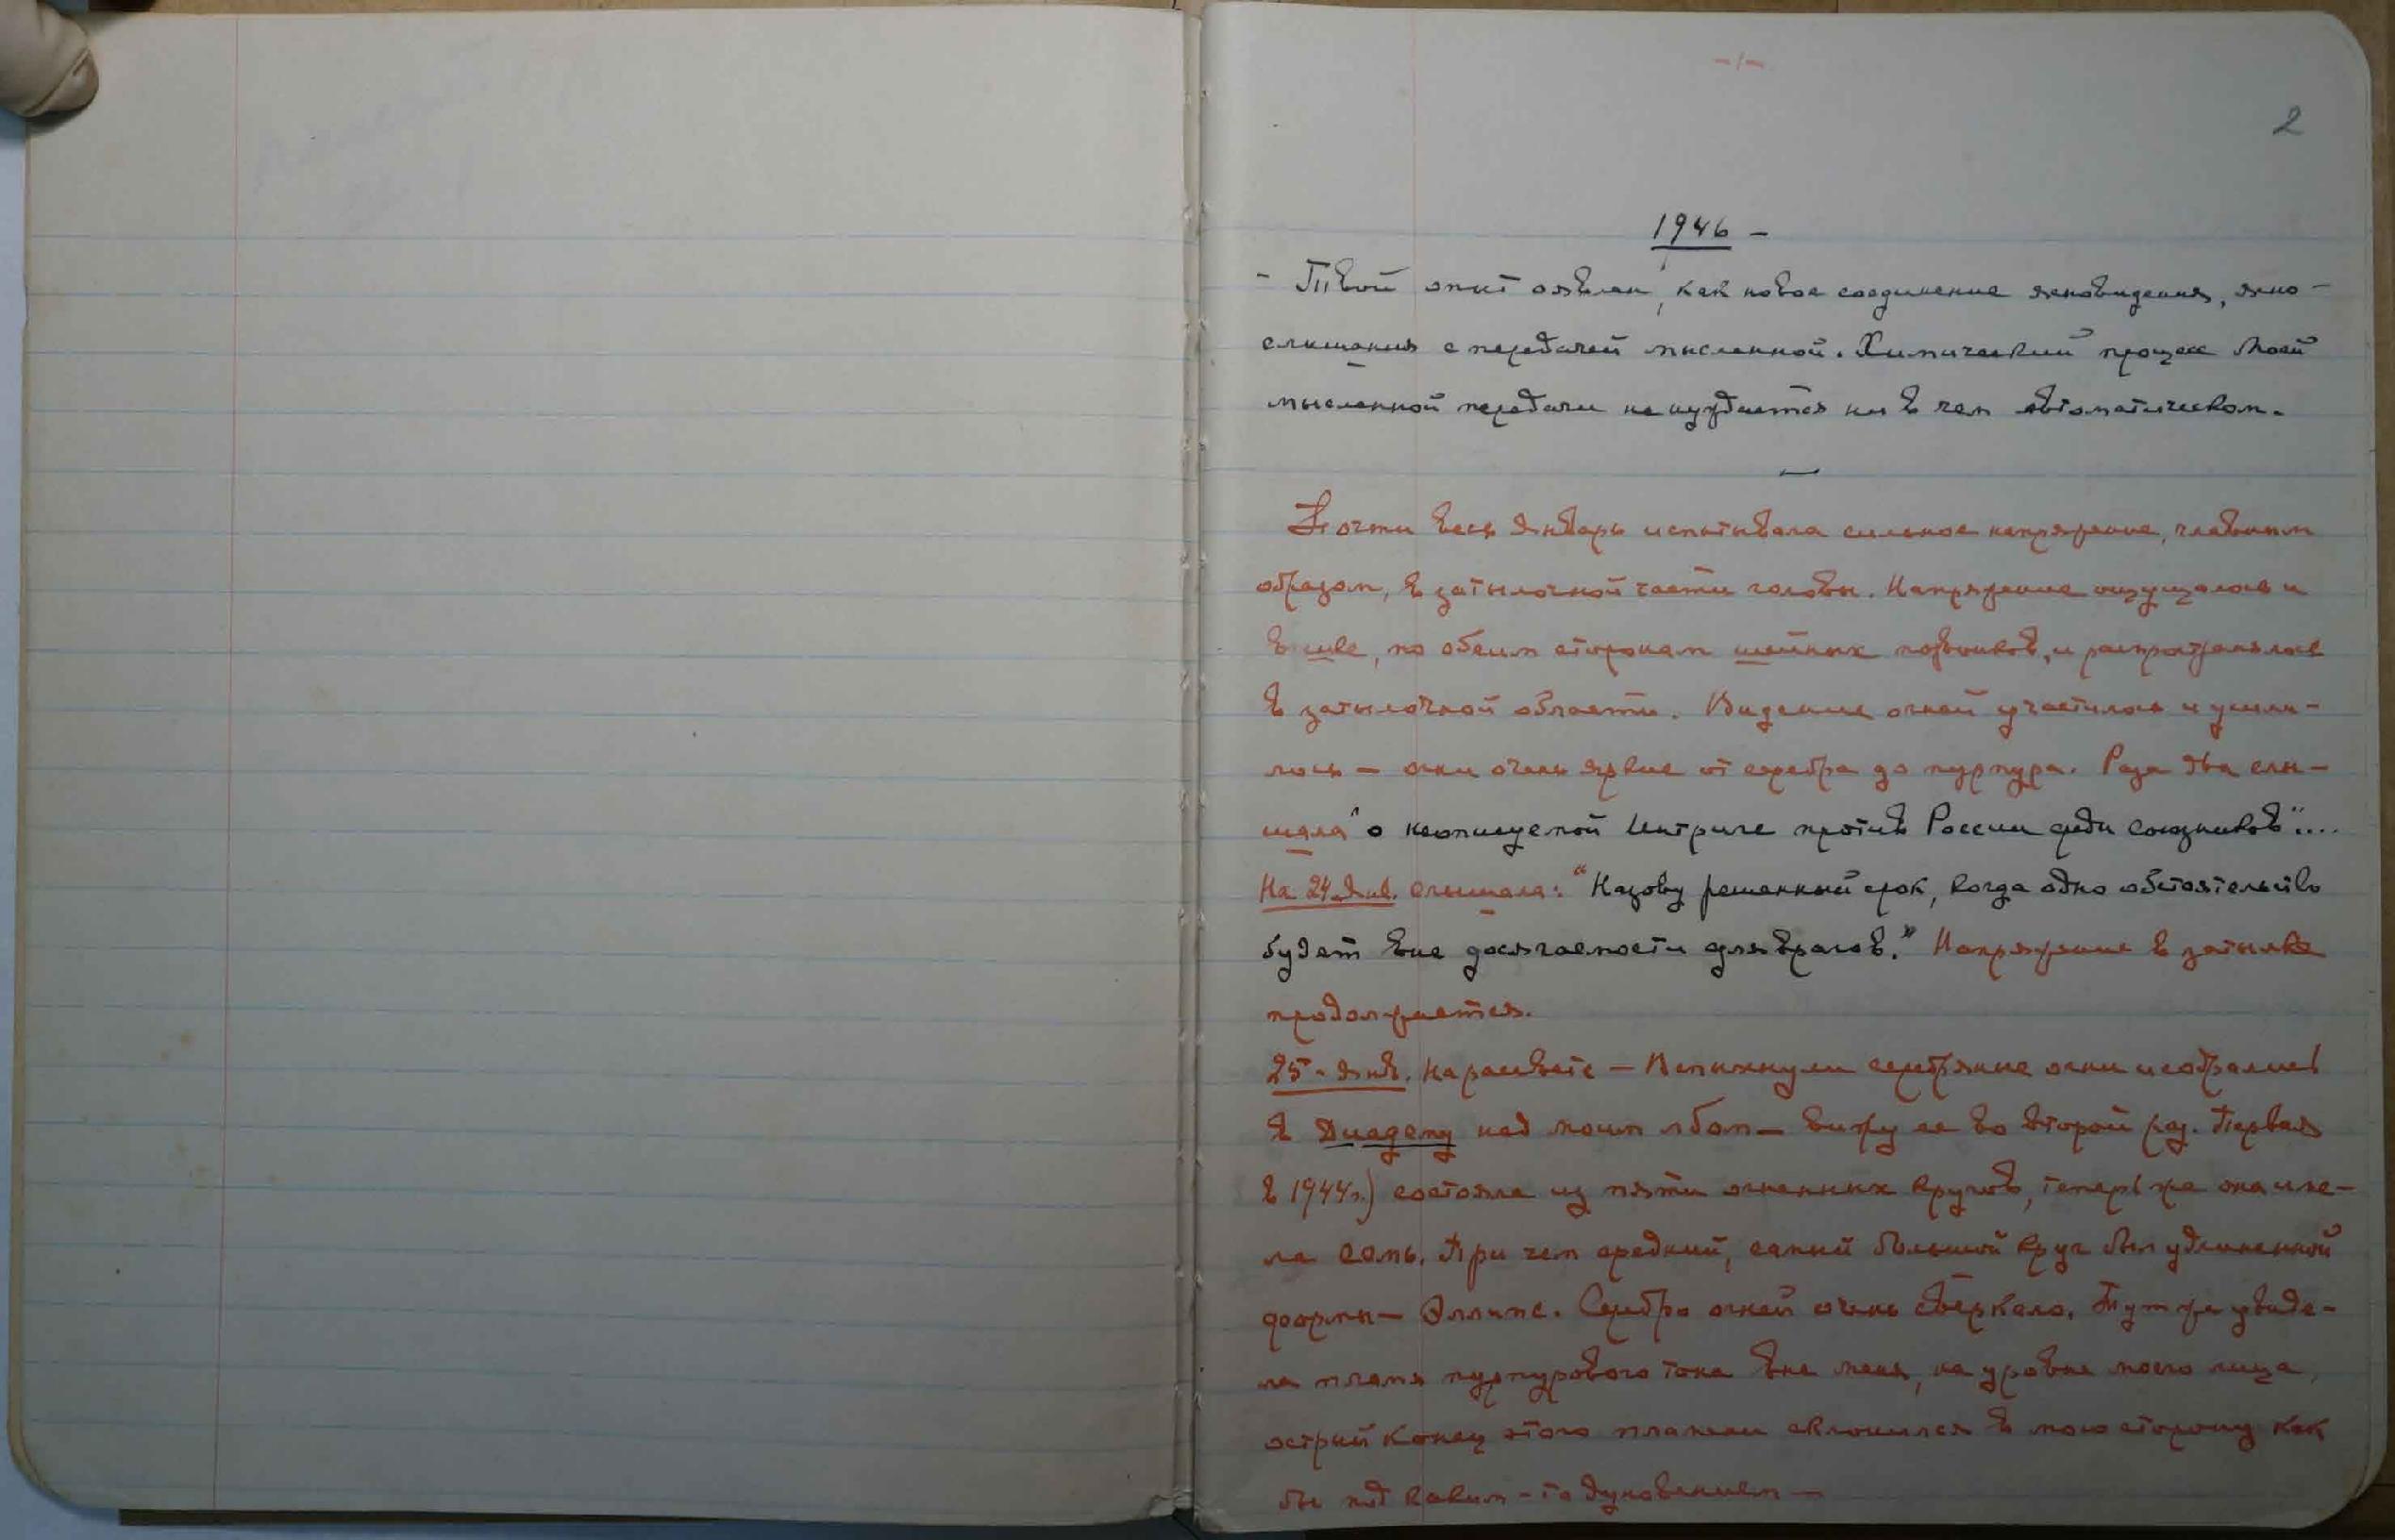 -1-
2
1946 -
- Твой опыт явлен, как новое соединение ясновидения, ясно-
слышания с передачей мысленной. Химический процесс Моей
мысленной передачи не нуждается ни в чем автоматическом.
—
Почти весь Январь испытывала сильное напряжение, главным
образом, в затылочной части головы. Напряжение ощущалось и
в шее, по обеим сторонам шейных позвонков, и распространялось
в затылочной области. Видение огней участилось и усили-
лось — огни очень яркие от серебра до пурпура. Раза два слы-
шала "о неописуемой Интриге против России среди союзников"....
На 24 Янв. слышала: "Назову решенный срок, когда одно обстоятельство
будет вне досягаемости для врагов." Напряжение в затылке
продолжается.
25 - Янв. На рассвете — Вспыхнули серебряные огни и собрались
в Диадему над моим лбом — вижу ее во второй раз. Первая
в 1944 г.) состояла из пяти огненных кругов, теперь же она име-
ла семь. При чем средний, самый большой круг был удлиненной
формы — Эллипс. Серебро огней очень сверкало. Тут же увиде-
ла пламя пурпурового тона вне меня, на уровне моего лица,
острый конец этого пламени склонился в мою сторону как
бы под каким-то дуновением —